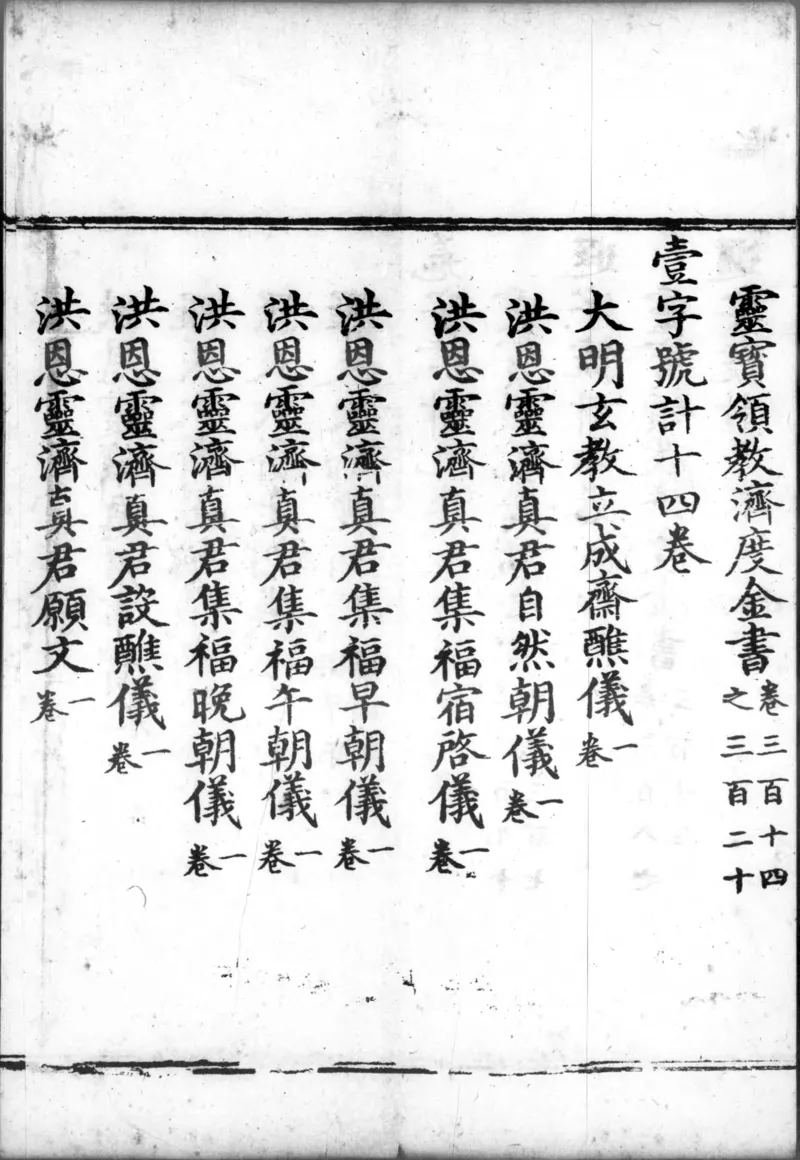 靈寶領教濟度金書卷三百十四之三百二十
壹字號計十四卷
大明玄教立成齋醮儀一卷
洪恩靈濟真君自然朝儀一卷
洪恩靈濟真君集福宿啓儀一卷
洪恩靈濟真君集福早朝儀一卷
洪恩靈濟真君集福午朝儀一卷
洪恩靈濟真君集福晚朝儀一卷
洪恩靈濟真君設醮儀一卷
洪恩靈濟真君願文一卷